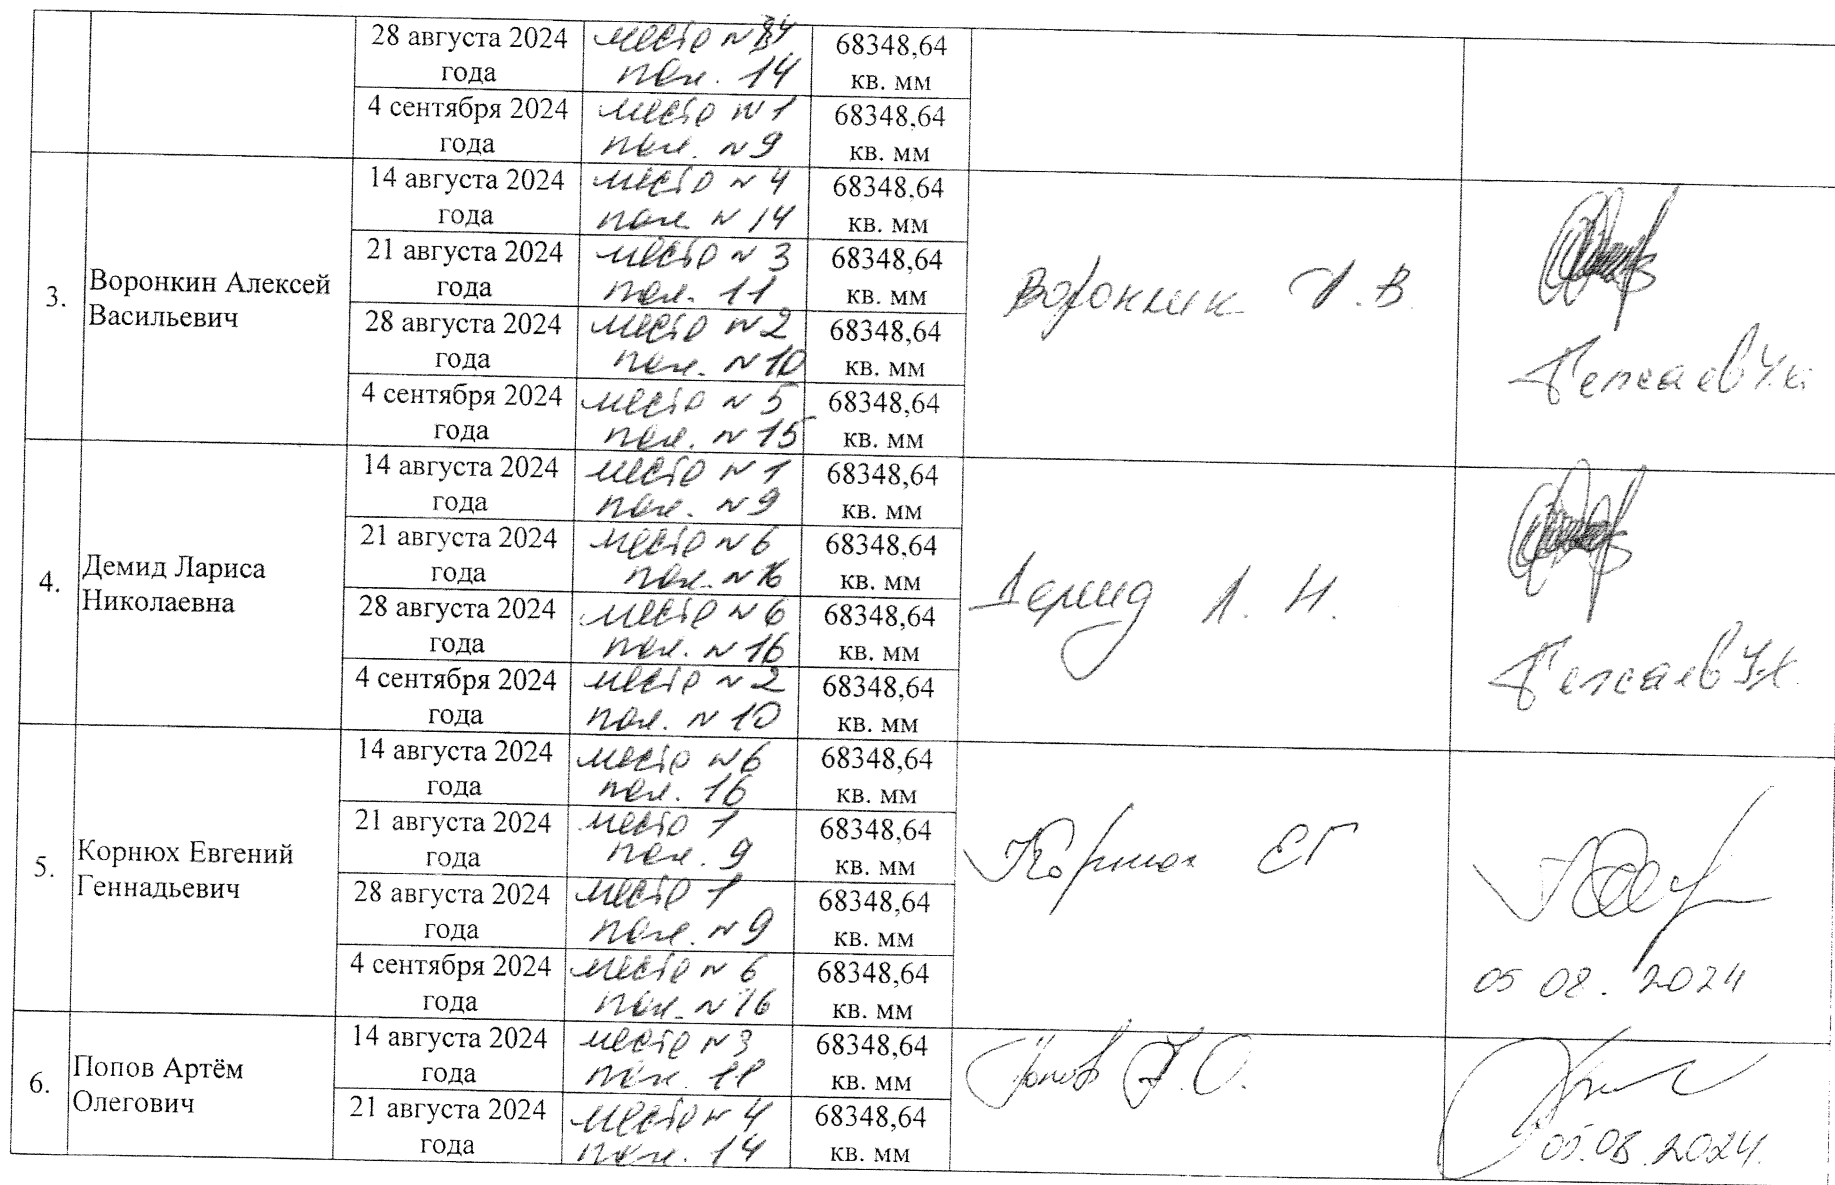 28 августа 2024 года место №4 пол. 14 68348,64 кв. мм
4 сентября 2024 года место №1 пол. №9 68348,64 кв. мм
3. Воронкин Алексей Васильевич
14 августа 2024 года место №4 пол. №14 68348,64 кв. мм
21 августа 2024 года место №3 пол. 11 68348,64 кв. мм
28 августа 2024 года место №2 пол. №10 68348,64 кв. мм
4 сентября 2024 года место №5 пол. №15 68348,64 кв. мм
Воронкин А.В.
4. Демид Лариса Николаевна
14 августа 2024 года место №1 пол. №9 68348,64 кв. мм
21 августа 2024 года место №6 пол. №16 68348,64 кв. мм
28 августа 2024 года место №6 пол. №16 68348,64 кв. мм
4 сентября 2024 года место №2 пол. №10 68348,64 кв. мм
Демид Л. Н.
5. Корнюх Евгений Геннадьевич
14 августа 2024 года место №6 пол. 16 68348,64 кв. мм
21 августа 2024 года место 1 пол. 9 68348,64 кв. мм
28 августа 2024 года место 1 пол. №9 68348,64 кв. мм
4 сентября 2024 года место №6 пол. №16 68348,64 кв. мм
Корнюх ЕГ
05 08. 2024
6. Попов Артём Олегович
14 августа 2024 года место №3 пол. 11 68348,64 кв. мм
21 августа 2024 года место №4 пол. 14 68348,64 кв. мм
Попов А.О.
05.08.2024.